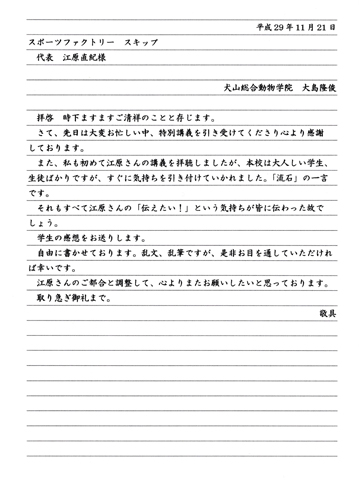 平成29年11月21日
スポーツファクトリー　スキップ
代表　江原直紀様
犬山総合動物学院　大島隆俊
拝啓　時下ますますご清祥のことと存じます。
さて、先日は大変お忙しい中、特別講義を引き受けてくださり心より感謝
しております。
また、私も初めて江原さんの講義を拝聴しましたが、本校は大人しい学生、
生徒ばかりですが、すぐに気持ちを引き付けていかれました。「流石」の一言
です。
それもすべて江原さんの「伝えたい！」という気持ちが皆に伝わった故で
しょう。
学生の感想をお送りします。
自由に書かせております。乱文、乱筆ですが、是非お目を通していただけれ
ば幸いです。
江原さんのご都合と調整して、心よりまたお願いしたいと思っております。
取り急ぎ御礼まで。
敬具